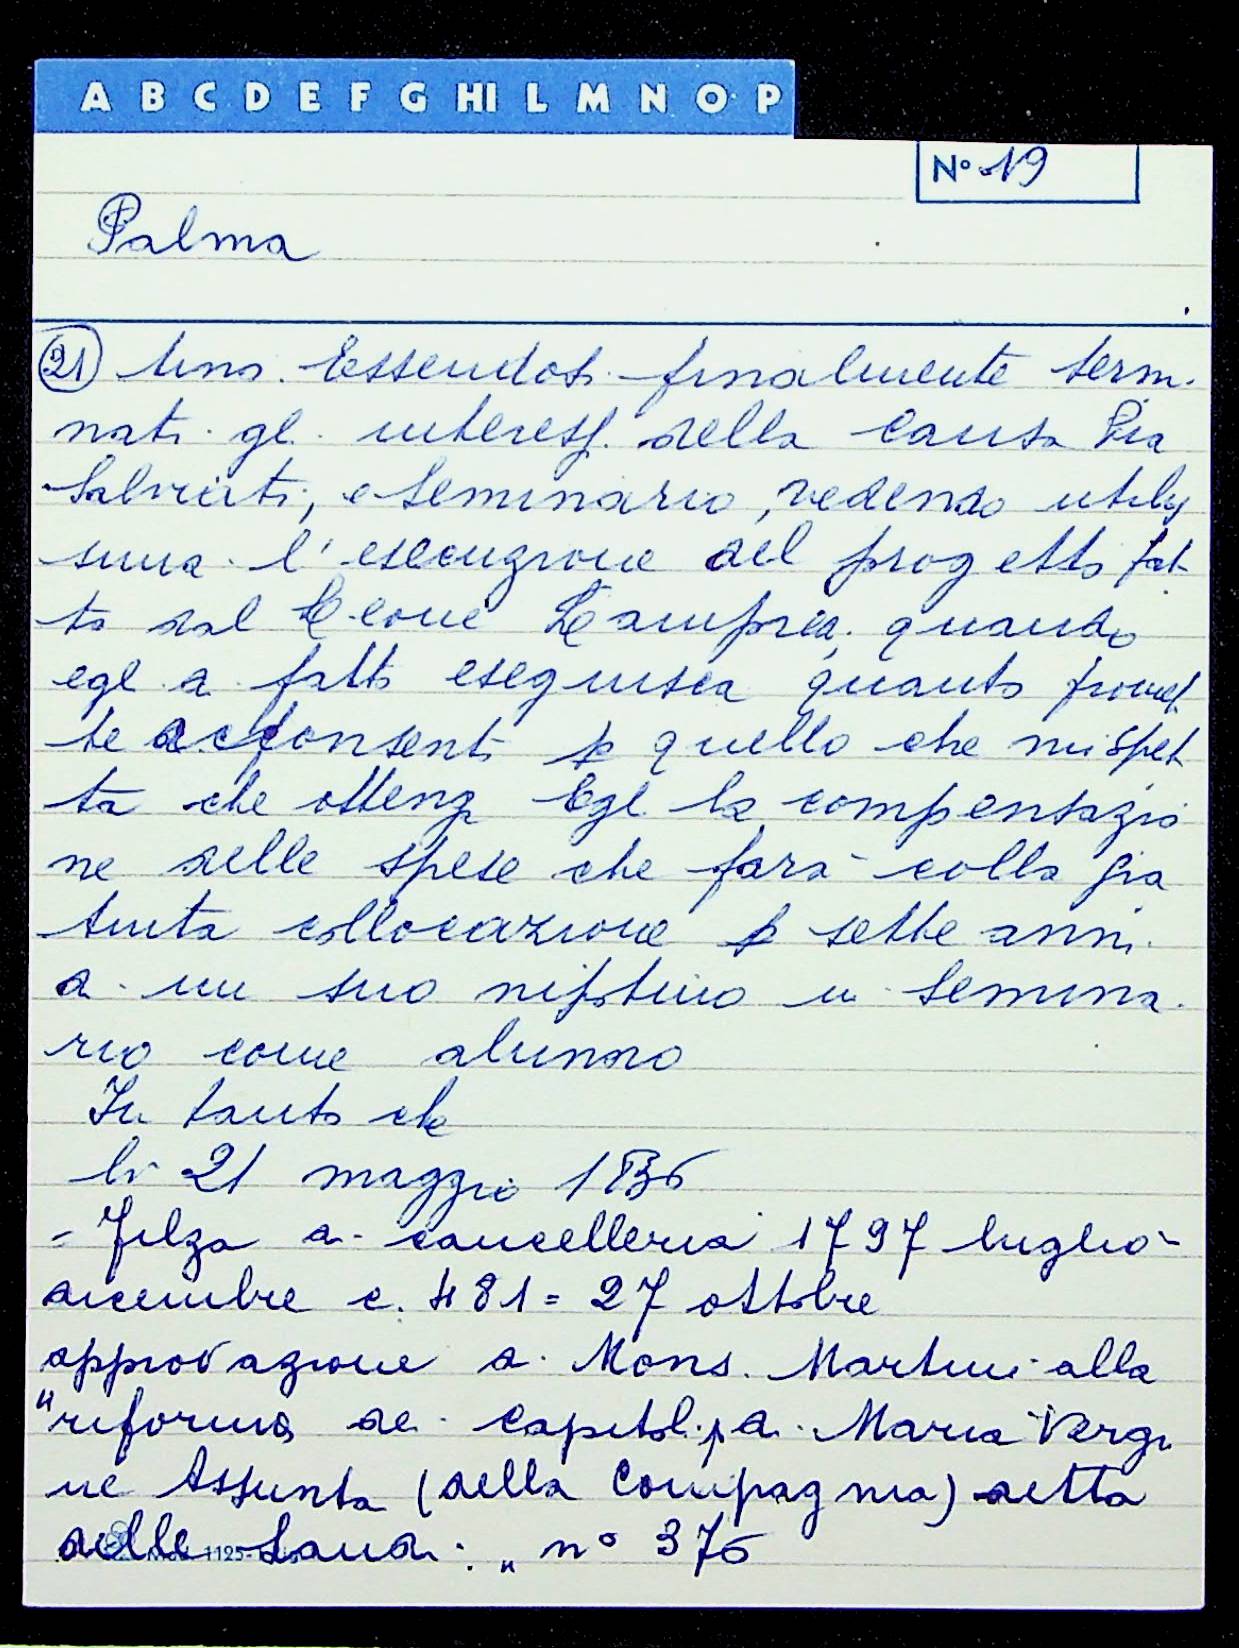 A B C D E F G HI L M N O P
Nº 19
Palma
21) Essendosi finalmente termi
nati gl interessi della Causa Pia
Salviati, e Seminario, vedendo utilis
sima l'esecuzione del progetto fat
to dal quando
egli a fatti eseguisca quanto promet
te acconsenti p quello che mi spet
ta che ottenga Egli la compensazio
ne delle spese che farà colla gra
tuita collocazione p sette anni
a un suo nipotino in Semina
rio come alunno
In tanto che
li 21 maggio
= Filza di cancelleria 1797 luglio-
dicembre c. 481 = 27 ottobre
approvazione di Mons. Martini alla
"riforma dei capitoli di Maria Vergi
ne Assunta (della Compagnia) detta
delle Laudi." nº 376
1125